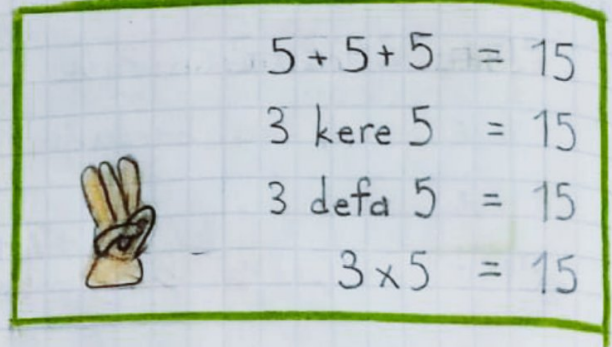 5 + 5 + 5 = 15
3 kere 5 = 15
3 defa 5 = 15
3 x 5 = 15